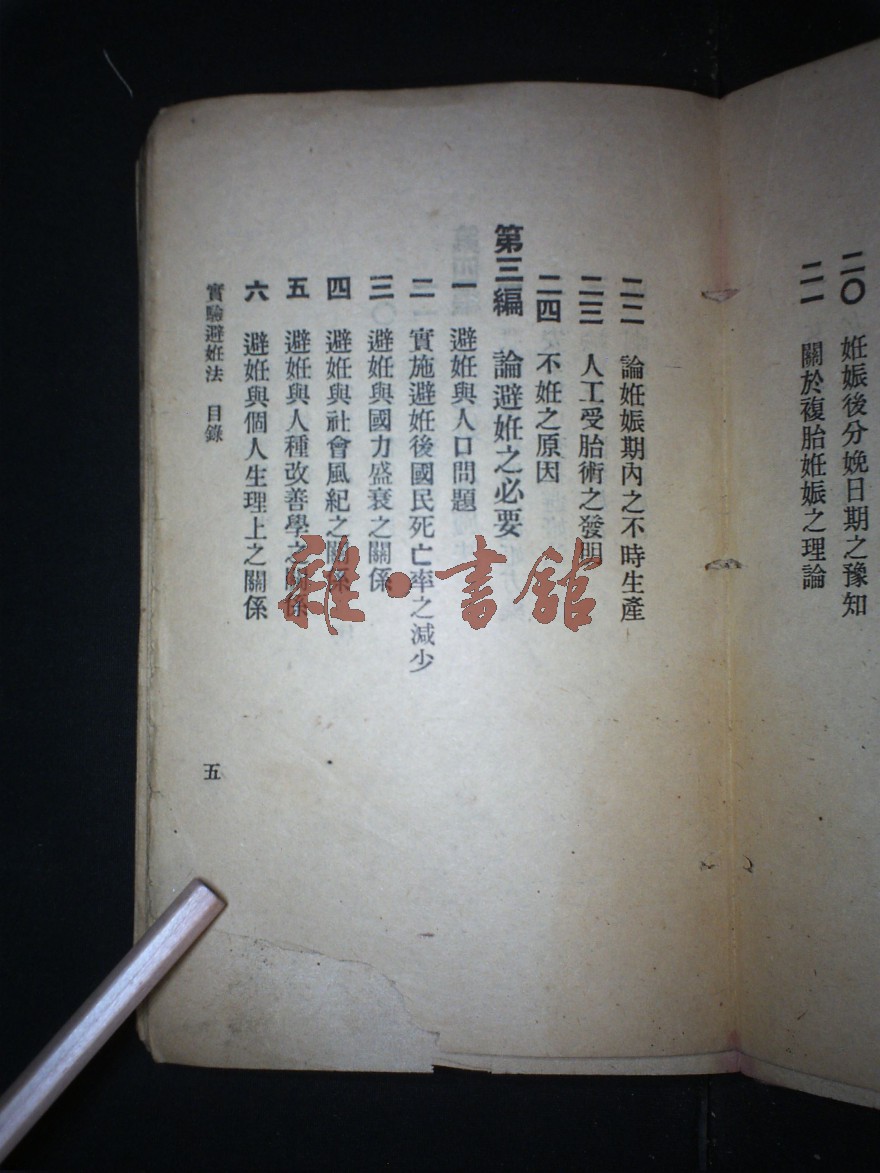 二〇 妊娠後分娩日期之豫知
二一 關於複胎妊娠之理論
二二 論妊娠期內之不時生產
二三 人工受胎術之發明
二四 不妊之原因
第三編 論避妊之必要
一 避妊與人口問題
二 實施避妊後國民死亡率之減少
三 避妊與國力盛衰之關係
四 避妊與社會風紀之關係
五 避妊與人種改善學之關係
六 避妊與個人生理上之關係
實驗避妊法 目錄
五
雜·書館